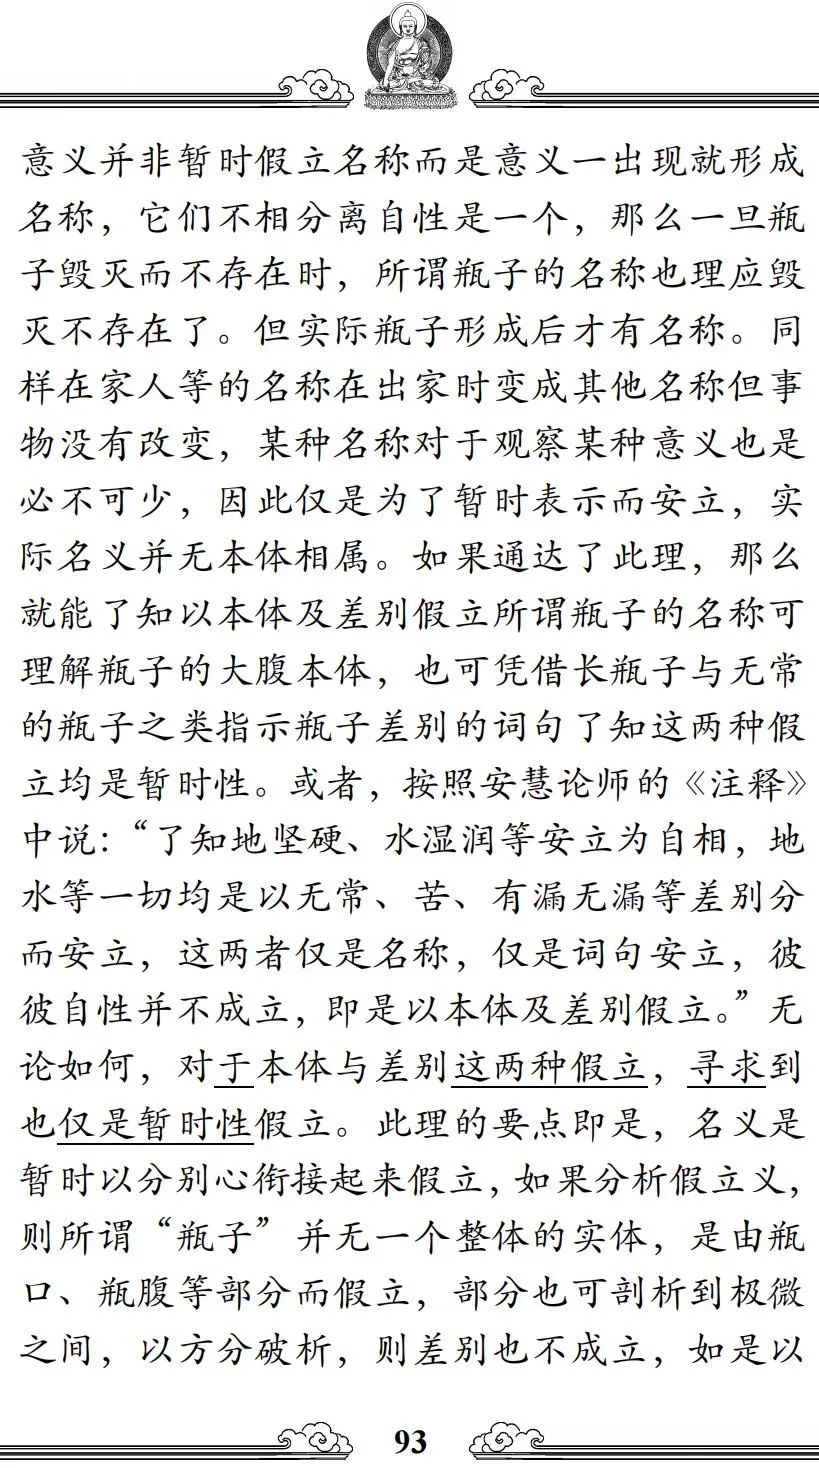 意义并非暂时假立名称而是意义一出现就形成
名称，它们不相分离自性是一个，那么一旦瓶
子毁灭而不存在时，所谓瓶子的名称也理应毁
灭不存在了。但实际瓶子形成后才有名称。同
样在家人等的名称在出家时变成其他名称但事
物没有改变，某种名称对于观察某种意义也是
必不可少，因此仅是为了暂时表示而安立，实
际名义并无本体相属。如果通达了此理，那么
就能了知以本体及差别假立所谓瓶子的名称可
理解瓶子的大腹本体，也可凭借长瓶子与无常
的瓶子之类指示瓶子差别的词句了知这两种假
立均是暂时性。或者，按照安慧论师的《注释》
中说：“了知地坚硬、水湿润等安立为自相，地
水等一切均是以无常、苦、有漏无漏等差别分
而安立，这两者仅是名称，仅是词句安立，彼
彼自性并不成立，即是以本体及差别假立。”无
论如何，对于本体与差别这两种假立，寻求到
也仅是暂时性假立。此理的要点即是，名义是
暂时以分别心衔接起来假立，如果分析假立义，
则所谓“瓶子”并无一个整体的实体，是由瓶
口、瓶腹等部分而假立，部分也可剖析到极微
之间，以方分破析，则差别也不成立，如是以
93